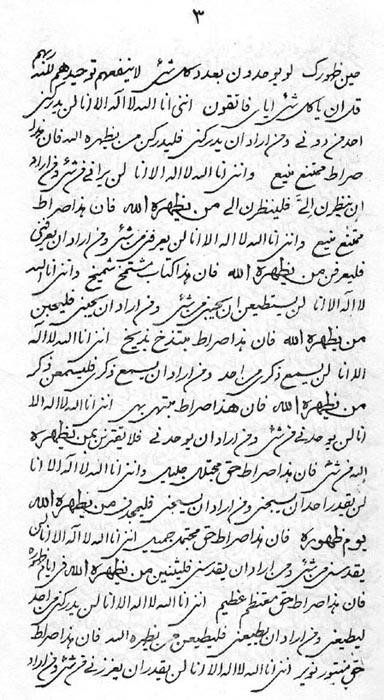 ٣
حين ظهورك لو يوحدون بعدد كل شيء لا ينفعهم توحيدهم لله ربهم
قل ان يا كل شيء اياي فاتقون انني انا الله لا اله الا انا لن يدركني
احد من دوني ومن اراد ان يدركني فليدركن من يظهره الله فان هذا
صراط ممتنع منيع وانني انا الله لا اله الا انا لن يراني من شيء ومن اراد
ان ينظرن الي فلينظرن الى من يظهره الله فان هذا صراط
ممتنع منيع وانني انا الله لا اله الا انا لن يعرفني من شيء ومن اراد ان يعرفني
فليعرفن من يظهره الله فان هذا كتاب مشتمخ شميخ وانني انا الله
لا اله الا انا لن يستطيعن ان يحبني من شيء ومن اراد ان يحبني فليحبن
من يظهره الله فان هذا صراط مبتذخ بذيخ انني انا الله لا اله
الا انا لن يسمع ذكري من احد ومن اراد ان يسمع ذكري فليسمعن ذكر
من يظهره الله فان هذا صراط مبتهي بهي انني انا الله لا اله الا
انا لن يوحدني من شيء ومن اراد ان يوحدني فلا يقترن بمن يظهره
الله من شيء فان هذا صراط حق مجتلل جليل وانني انا الله لا اله الا انا
لن يقدر احد ان يسبحني ومن اراد ان يسبحني فليحمدن من يظهره الله
يوم ظهوره فان هذا صراط حق مجتمل جميل انني انا الله لا اله الا انا لن
يقدسني من شيء ومن اراد ان يقدسني فليثنين من يظهره الله في ايام ظهوره
فان هذا صراط حق معتظم عظيم انني انا الله لا اله الا انا لن يدركني من احد
ليطيعني ومن اراد ان يطيعني فليطيعن من يظهره الله فان هذا صراط
حق منتور نوير انني انا الله لا اله الا انا لن يقدر ان يعززني من شيء ومن اراد